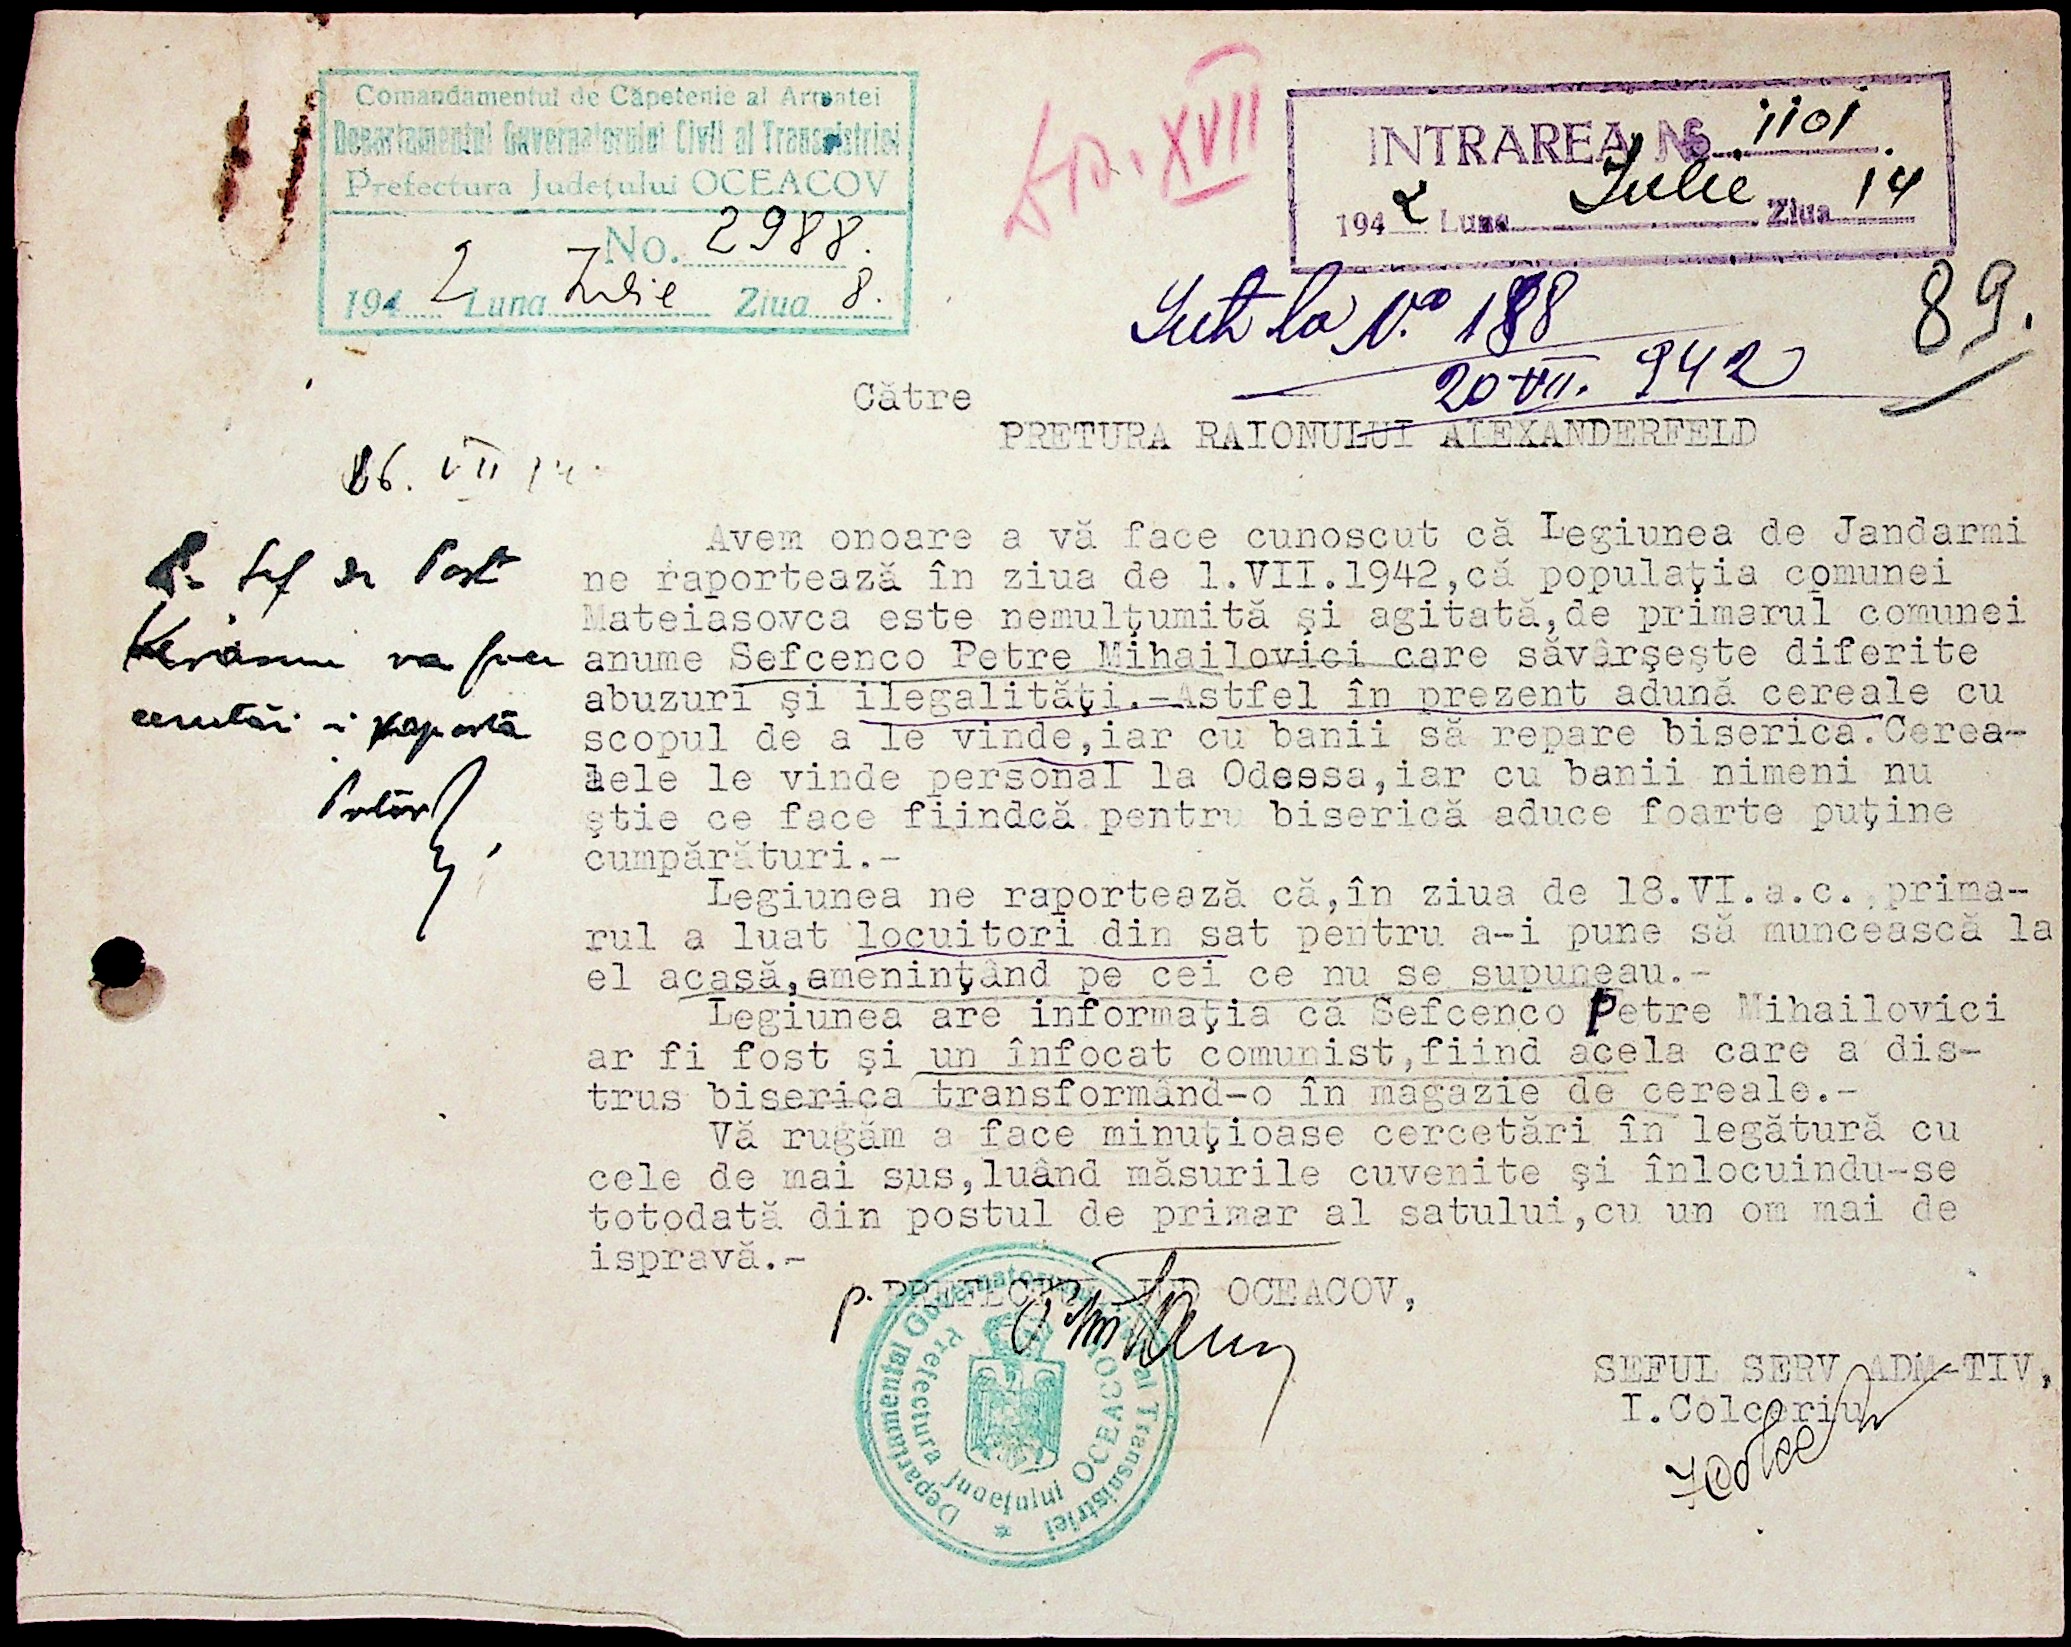 Comandamentul de Căpetenie al Armatei
Departamentul Guvernatorului Civil al Transnistriei
Prefectura Județului OCEACOV
No. 2988.
1942 Luna Iulie Ziua 8.
XVII
INTRAREA No 1101
1942 Luna Iulie Ziua 14
la No 188
20 VII. 942
89.
Către
PRETURA RAIONULUI ALEXANDERFELD
16. VII
Șef de Post
va face
cercetări și raportă
Pretor
Avem onoare a vă face cunoscut că Legiunea de Jandarmi
ne raportează în ziua de 1.VII.1942,că populaţia comunei
Mateiasovca este nemulţumită şi agitată,de primarul comunei
anume Sefcenco Petre Mihailovici care săvârşeşte diferite
abuzuri şi ilegalităţi.-Astfel în prezent adună cereale cu
scopul de a le vinde,iar cu banii să repare biserica.Cerea-
lele le vinde personal la Odessa,iar cu banii nimeni nu
ştie ce face fiindcă pentru biserică aduce foarte puţine
cumpărături.-
Legiunea ne raportează că,în ziua de 18.VI.a.c.,prima-
rul a luat locuitori din sat pentru a-i pune să muncească la
el acasă,ameninţând pe cei ce nu se supuneau.-
Legiunea are informaţia că Sefcenco Petre Mihailovici
ar fi fost şi un înfocat comunist,fiind acela care a dis-
trus biserica transformând-o în magazie de cereale.-
Vă rugăm a face minuţioase cercetări în legătură cu
cele de mai sus,luând măsurile cuvenite şi înlocuindu-se
totodată din postul de primar al satului,cu un om mai de
ispravă.-
p. PREFECTUL JUD OCEACOV,
Departamentul Guvernatorului Civil al Transnistriei
Prefectura Județului OCEACOV
SEFUL SERV ADM-TIV,
I.Colceriu